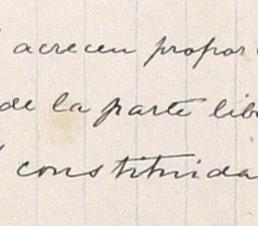 acrecen propor
de la parte lib
constituida